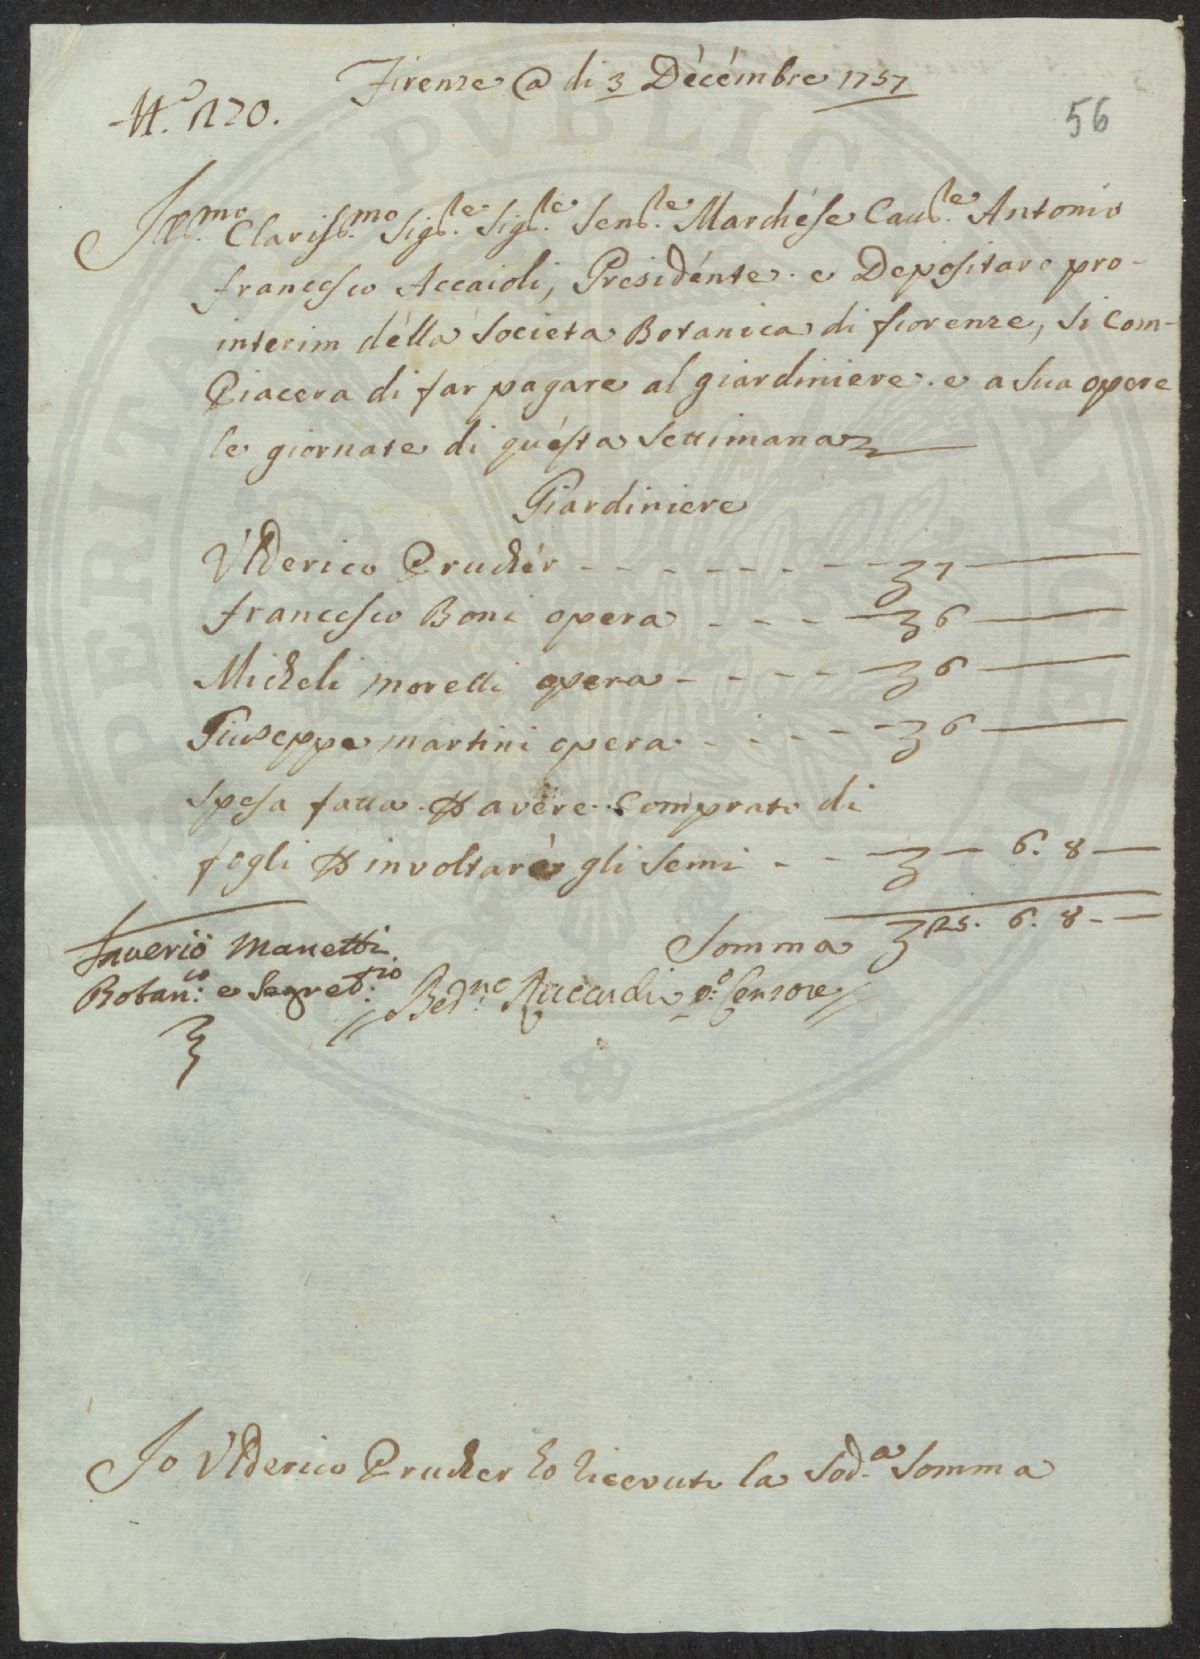 Firenze @ di 3 Décémbre 1757
N.º 120.
56
Ill.mo Clariss.mo Sig.le Sig.le Sen.le Marchése Cau.le Antonio
francesco Accaioli, Presidénte e Depositare pro-
interim délla Societa Botanica di fiorenze, si Com-
Piacera di far pagare al giardiniere e a sua opere
le giornate di quésta settimana
Giardiniere
Vlderico Prucker - - - - - - - - 7
francesco Boni opera - - - - 6
Micheli morelli opera - - - - 6
Giuseppe martini opera - - - - 6
spesa fatta ꝑ avere Comprato di
fogli ꝑ involtare gli semi - - - 6. 8
Somma 25. 6. 8 -
Saverio Manetti
Botan.co e Segret.rio
Bed.no Riccardi p.º Censore
Jo Vlderico Prucker ho ricevuto la Sod.a Somma